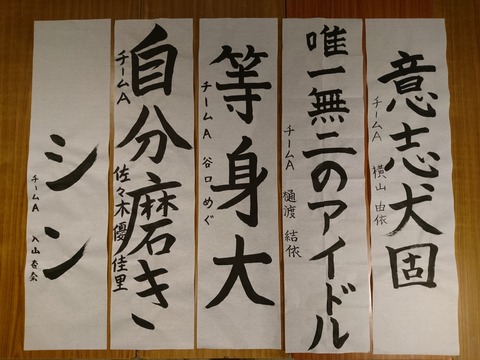 意志犬固
チームA 横山 由依
唯一無二のアイドル
チームA 樋渡 結依
等身大
チームA 谷口 めぐ
自分磨き
チームA 佐々木 優佳里
シン
チームA 入山 杏奈